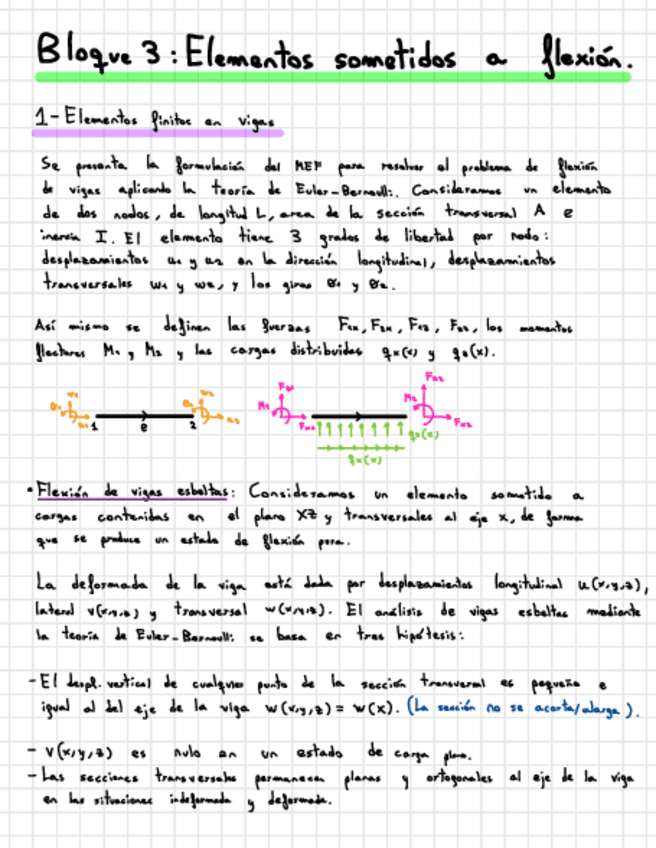 Bloque 3: Elementos sometidos a flexión.
1- Elementos finitos en vigas
Se presenta la formulación del MEF para resolver el problema de flexión
de vigas aplicando la teoría de Euler-Bernoulli. Consideramos un elemento
de dos nodos, de longitud L, area de la sección transversal A e
inercia I. El elemento tiene 3 grados de libertad por nodo:
desplazamientos u₁ y u₂ en la dirección longitudinal, desplazamientos
transversales w₁ y w₂, y los giros θ₁ y θ₂.
Así mismo se definen las fuerzas Fₓ₁, Fₓ₂, los momentos
flectores M₁ y M₂ y las cargas distribuidas qx(x) y qz(x).
M₁ M₂
1 e 2
qz(x)
qx(x)
• Flexión de vigas esbeltas: Consideramos un elemento sometido a
cargas contenidas en el plano XZ y transversales al eje x, de forma
que se produce un estado de flexión pura.
La deformada de la viga está dada por desplazamientos longitudinal u(x,y,z),
lateral v(x,y,z) y transversal w(x,y,z). El análisis de vigas esbeltas mediante
la teoría de Euler-Bernoulli se basa en tres hipótesis:
- El despl. vertical de cualquier punto de la sección transversal es pequeño e
igual al del eje de la viga w(x,y,z) = w(x). (La sección no se acorta/alarga).
- v(x,y,z) es nulo en un estado de carga plano.
- Las secciones transversales permanecen planas y ortogonales al eje de la viga
en las situaciones indeformada y deformada.